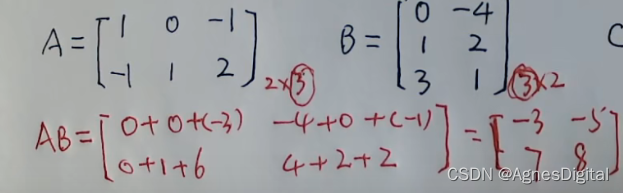 A = [1 0 -1
-1 1 2] 2×3
B = [0 -4
1 2
3 1] 3×2
C
AB = [0+0+(-3) -4+0+(-1)
0+1+6 4+2+2] = [-3 -5
7 8]
CSDN @AgnesDigital